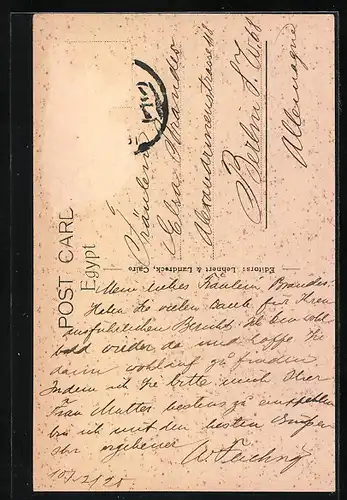 POST CARD
Egypt
Editors: Lehnert & Landrock, Cairo
Fräulein
Elsa Brandes
Alexandrinenstrasse
Berlin S.W. 68
Allemagne
Mein liebes Fräulein Brandes!
Haben Sie vielen Dank für Ihren
ausführlichen Bericht. Ich bin wohl
bald wieder da und hoffe Sie
dann wohlauf zu finden
Indem ich Sie bitte mich Ihrer
Frau Mutter bestens zu empfehlen
bin ich mit den besten Grüßen
Ihr ergebener